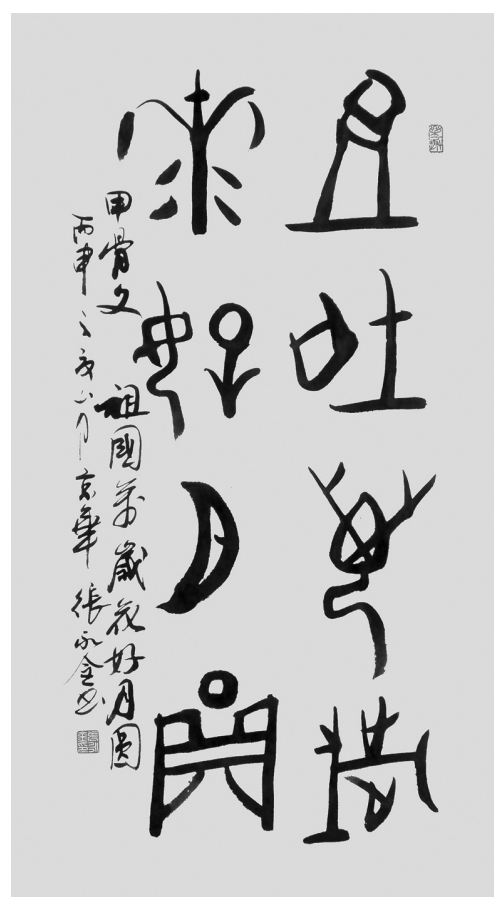 祖國萬歲
花好月圓
甲骨文 祖國萬歲花好月圓
丙申之歲六月京華張永金書